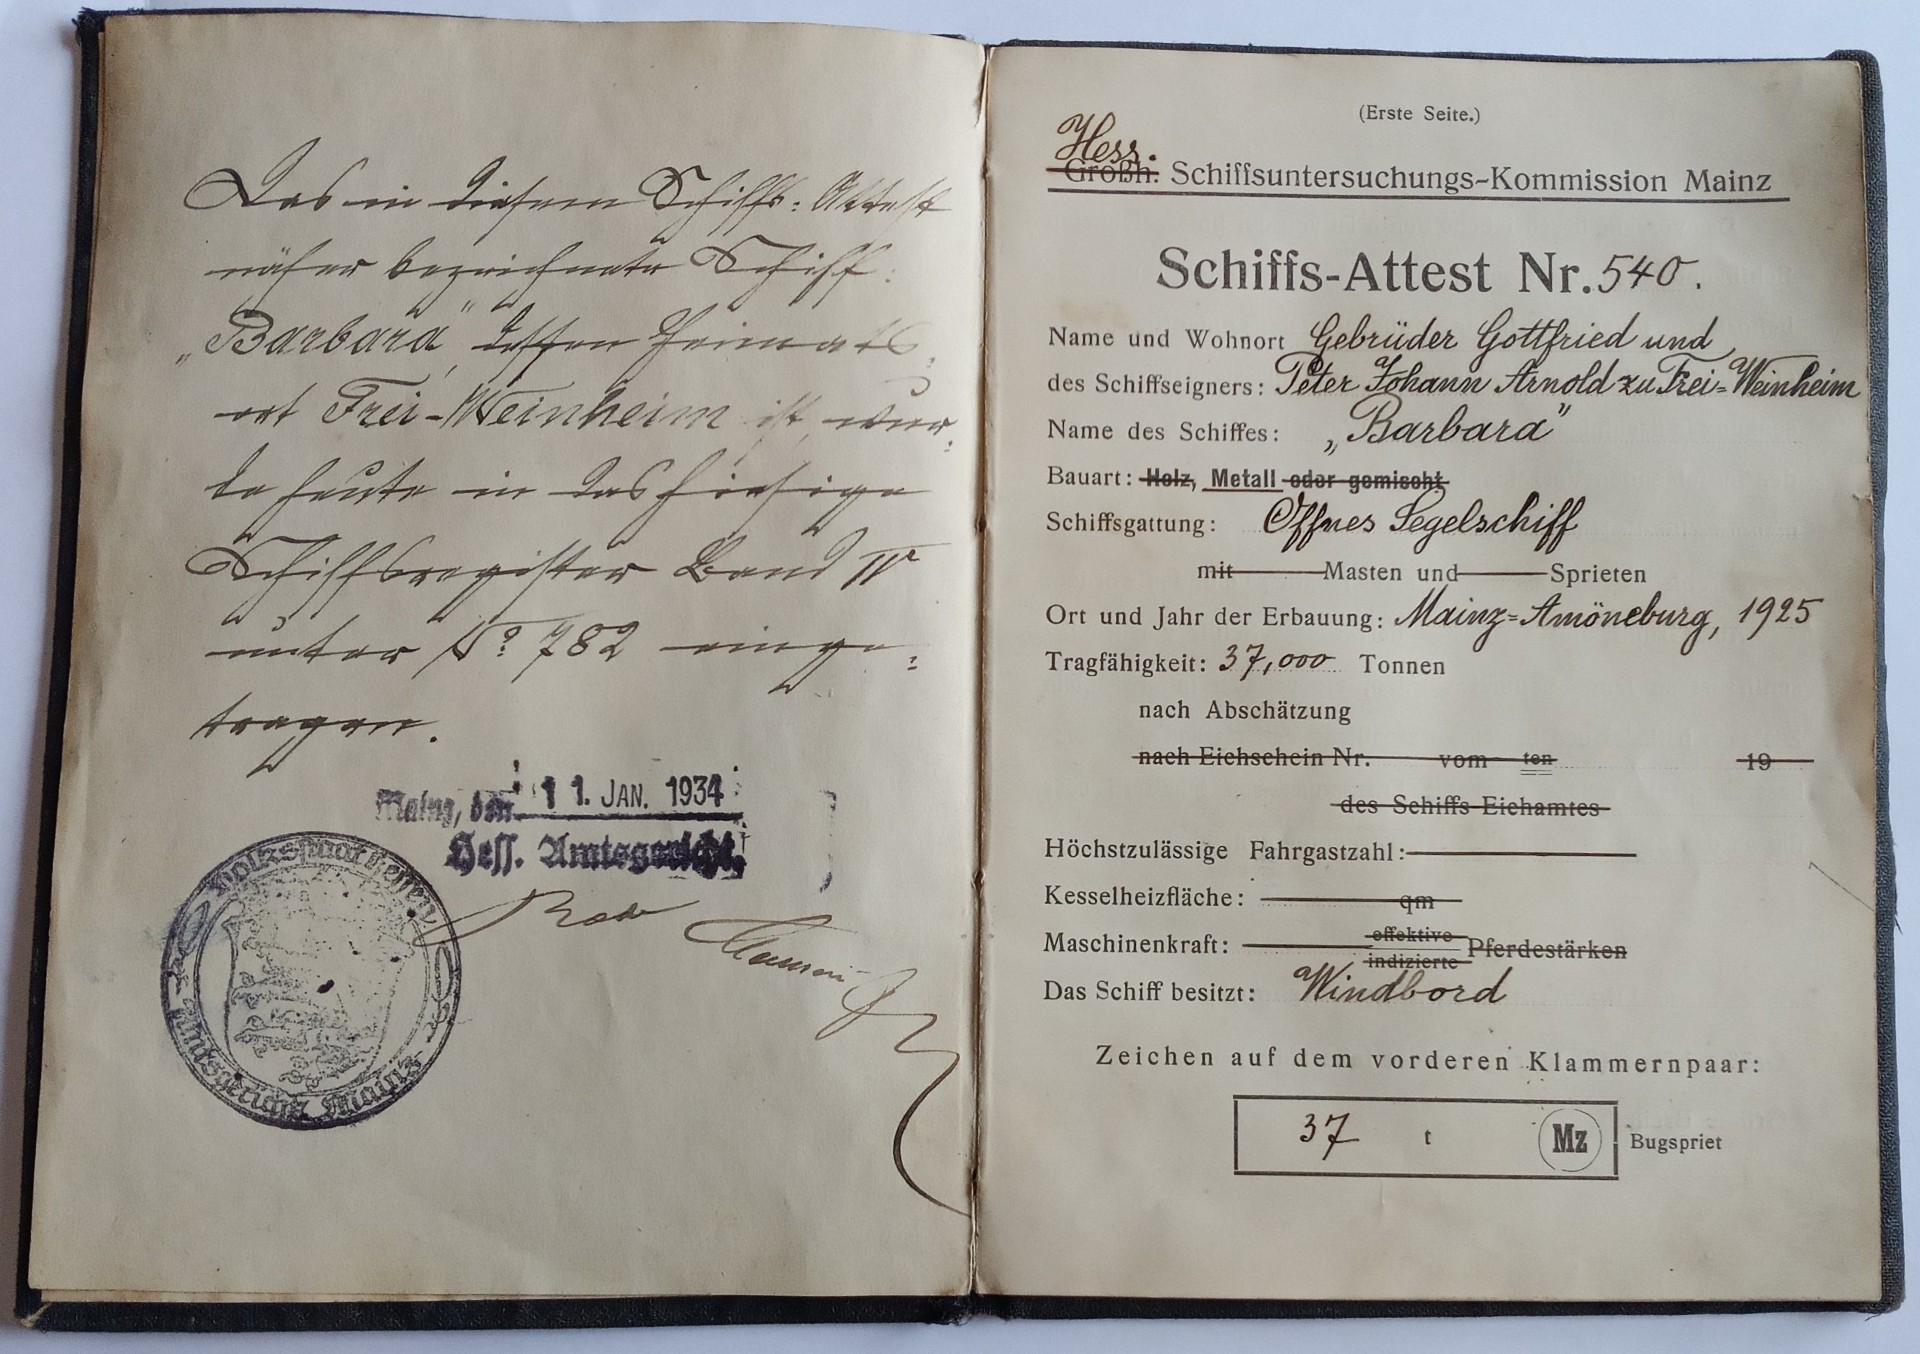 Das in diesem Schiffs-Attest
näher bezeichnete Schiff:
„Barbara“ dessen Heimats-
ort Frei-Weinheim ist, wur-
de heute in das hiesige
Schiffsregister Band IV
unter No 782 einge-
tragen.
Mainz, den 11. JAN. 1934
Hess. Amtsgericht.
Volksstaat Hessen
Amtsgericht Mainz
(Erste Seite.)
Hess.
Großh. Schiffsuntersuchungs-Kommission Mainz
Schiffs-Attest Nr. 540.
Name und Wohnort Gebrüder Gottfried und
des Schiffseigners: Peter Johann Arnold zu Frei-Weinheim
Name des Schiffes: „Barbara“
Bauart: Holz, Metall oder gemischt
Schiffsgattung: Offnes Segelschiff
mit Masten und Sprieten
Ort und Jahr der Erbauung: Mainz-Amöneburg, 1925
Tragfähigkeit: 37,000 Tonnen
nach Abschätzung
nach Eichschein Nr. vom ten 19
des Schiffs-Eichamtes
Höchstzulässige Fahrgastzahl:
Kesselheizfläche: qm
Maschinenkraft: effektive indizierte Pferdestärken
Das Schiff besitzt: Windbord
Zeichen auf dem vorderen Klammernpaar:
37 t Mz Bugspriet